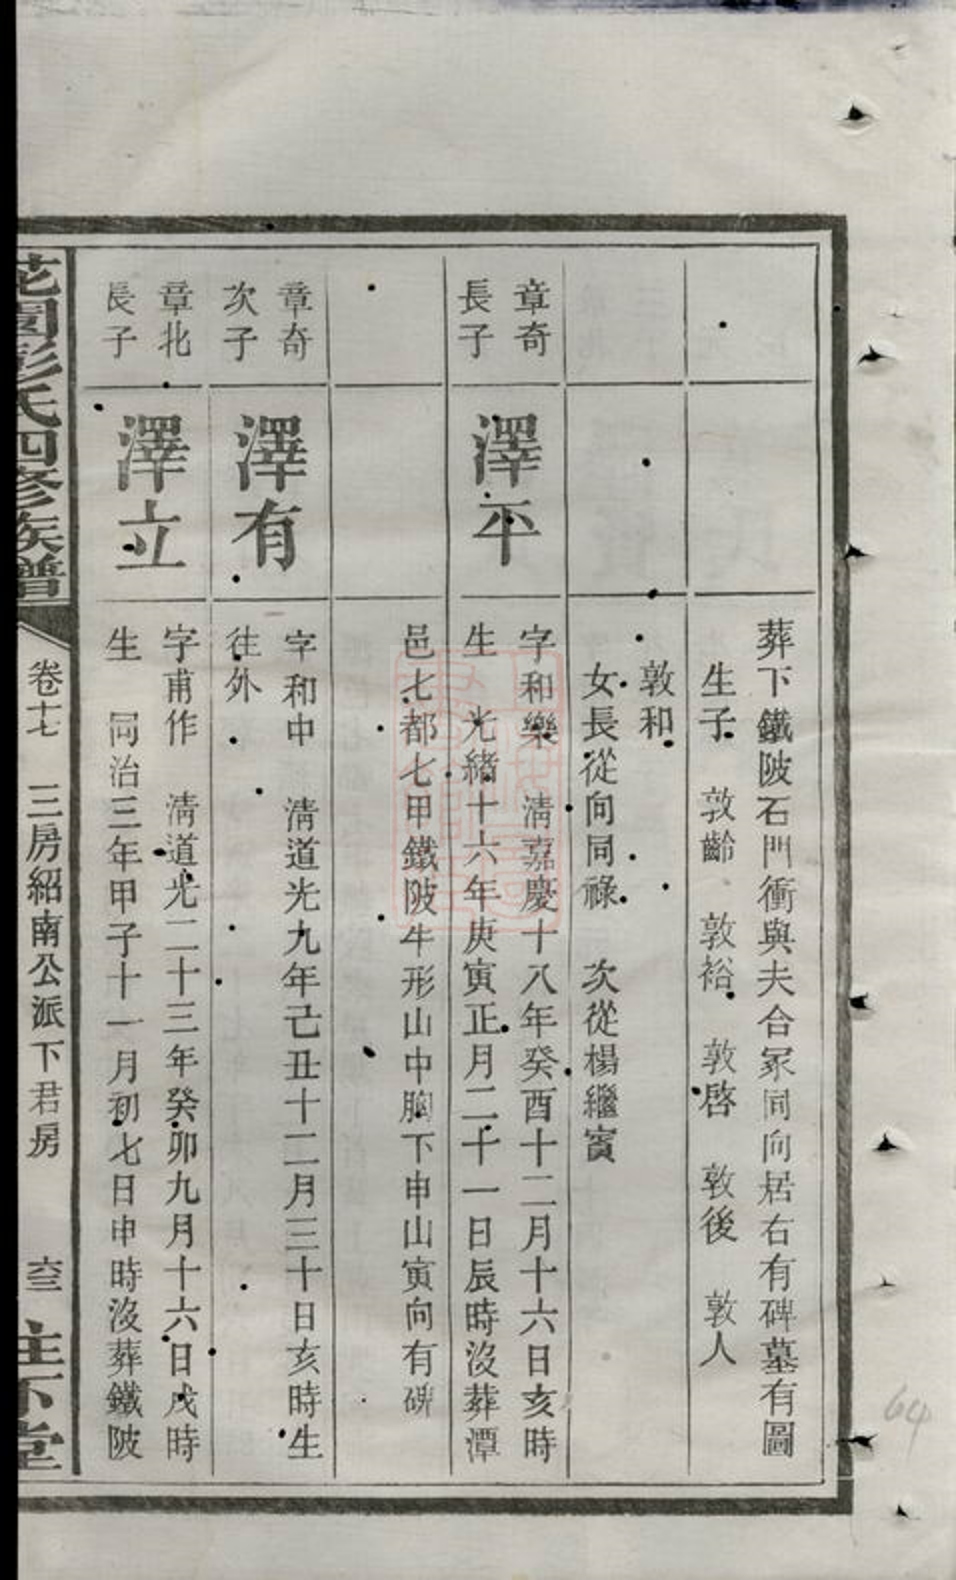 葬下鐵陂石門衝與夫合冢同向居右有碑墓有圖
生子 敦齡 敦裕 敦啓 敦後 敦人
敦和
女長從向同祿 次從楊繼賓
章奇
長子
澤平
字和樂 淸嘉慶十八年癸酉十二月十六日亥時
生 光緒十六年庚寅正月二十一日辰時沒葬潭
邑七都七甲鐵陂牛形山中胸下申山寅向有碑
章奇
次子
澤有
字和中 淸道光九年己丑十二月三十日亥時生
往外
章北
長子
澤立
字甫作 淸道光二十三年癸卯九月十六日戌時
生 同治三年甲子十一月初七日申時沒葬鐵陂
花園彭氏四修族譜
卷十七 三房紹南公派下君房
六三
64